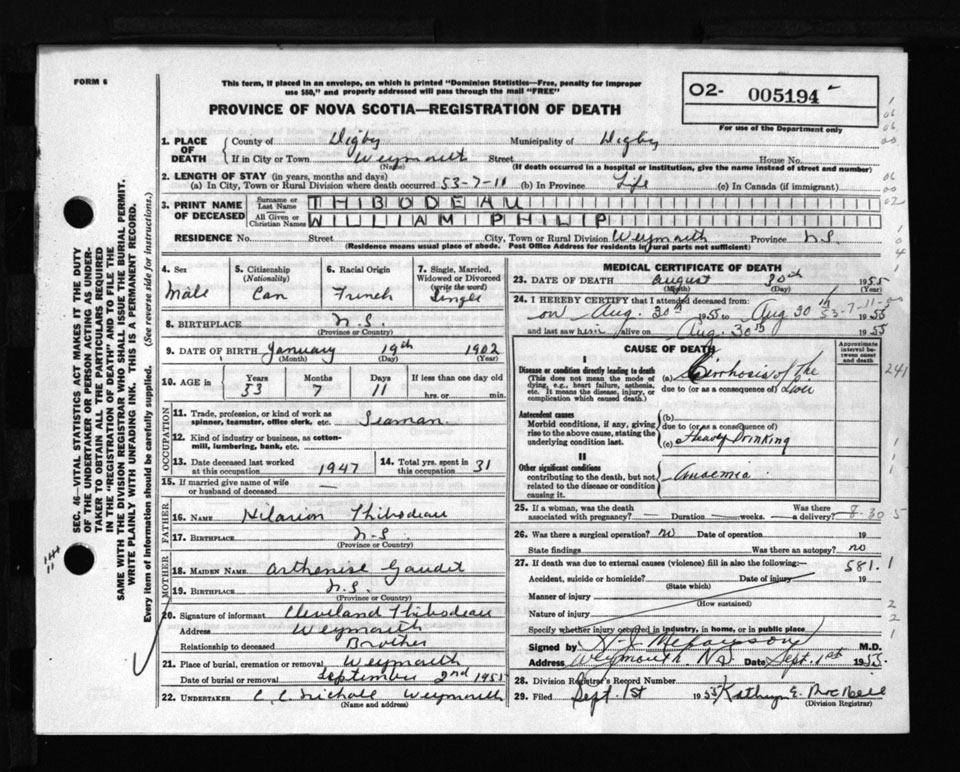 FORM 6
This form, if placed in an envelope, on which is printed "Dominion Statistics—Free, penalty for improper
use $50," and properly addressed will pass through the mail "FREE"
PROVINCE OF NOVA SCOTIA—REGISTRATION OF DEATH
O2- 005194
For use of the Department only
1. PLACE OF DEATH { County of Digby Municipality of Digby
If in City or Town Weymouth Street House No.
(Name) (If death occurred in a hospital or institution, give the name instead of street and number)
2. LENGTH OF STAY (in years, months and days)
(a) In City, Town or Rural Division where death occurred 53-7-11 (b) In Province Life (c) In Canada (if immigrant)
3. PRINT NAME OF DECEASED { Surname or Last Name THIBODEAU
All Given or Christian Names WILLIAM PHILIP
RESIDENCE No. Street City, Town or Rural Division Weymouth Province N.S.
(Residence means usual place of abode. Post Office Address for residents in rural parts not sufficient)
4. Sex
Male
5. Citizenship
(Nationality)
Can
6. Racial Origin
French
7. Single, Married,
Widowed or Divorced
(write the word)
Single
8. BIRTHPLACE N.S.
(Province or Country)
9. DATE OF BIRTH January 19th 1902
(Month) (Day) (Year)
10. AGE in Years Months Days If less than one day old
53 7 11 hrs. or min.
OCCUPATION
11. Trade, profession, or kind of work as
spinner, teamster, office clerk, etc. Seaman.
12. Kind of industry or business, as cotton-
mill, lumbering, bank, etc.
13. Date deceased last worked
at this occupation 1947
14. Total yrs. spent in
this occupation 31
15. If married give name of wife
or husband of deceased —
FATHER
16. NAME Hilarion Thibodeau
17. BIRTHPLACE N.S.
(Province or Country)
MOTHER
18. MAIDEN NAME Arthenise Gaudet
19. BIRTHPLACE N.S.
(Province or Country)
20. Signature of informant Cleveland Thibodeau
Address Weymouth
Relationship to deceased Brother
21. Place of burial, cremation or removal Weymouth
Date of burial or removal September 2nd 1955
22. UNDERTAKER C. C. Nichols Weymouth
(Name and address)
MEDICAL CERTIFICATE OF DEATH
23. DATE OF DEATH August 30th 1955
(Month) (Day) (Year)
24. I HEREBY CERTIFY that I attended deceased from:
on Aug. 30th 1955 to Aug 30th 1955
53-7-11-00
and last saw him alive on Aug. 30th 1955
CAUSE OF DEATH
Approximate
interval be-
tween onset
and death
I
Disease or condition directly leading to death
(This does not mean the mode of
dying, e.g., heart failure, asthenia,
etc. It means the disease, injury, or
complication which caused death.)
(a) Cirrhosis of the
due to (or as a consequence of)
241
Antecedent causes
Morbid conditions, if any, giving
rise to the above cause, stating the
underlying condition last.
(b)
due to (or as a consequence of)
(c) Heavy Drinking
II
Other significant conditions
contributing to the death, but not
related to the disease or condition
causing it.
Anaemia
25. If a woman, was the death
associated with pregnancy? — Duration —weeks. Was there
a delivery?
8-30 5
26. Was there a surgical operation? no Date of operation 19
State findings Was there an autopsy? no
27. If death was due to external causes (violence) fill in also the following:—
581.1
Accident, suicide or homicide? Date of injury 19
(State which)
Manner of injury
(How sustained)
Nature of injury
Specify whether injury occurred in industry, in home, or in public place
Signed by M.D.
Address Weymouth NS Date Sept. 1st 1955.
28. Division Registrar's Record Number
29. Filed Sept. 1st 1955 Kathryn E.
(Division Registrar)
SEC. 46—VITAL STATISTICS ACT MAKES IT THE DUTY
OF THE UNDERTAKER OR PERSON ACTING AS UNDER-
TAKER TO OBTAIN ALL THE PARTICULARS REQUIRED
IN THE "REGISTRATION OF DEATH" AND TO FILE THE
SAME WITH THE DIVISION REGISTRAR WHO SHALL ISSUE THE BURIAL PERMIT.
WRITE PLAINLY WITH UNFADING INK. THIS IS A PERMANENT RECORD.
Every item of information should be carefully supplied. (See reverse side for instructions.)